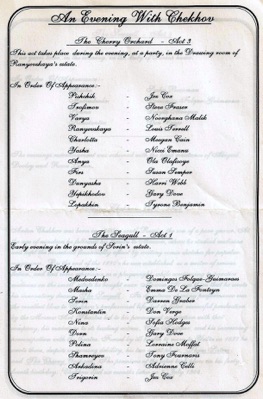 An Evening With Chekhov
The Cherry Orchard - Act 3
This act takes place during the evening, at a party, in the Drawing room of
Ranyevskaya's estate.
In Order Of Appearance:-
Pishchik - Jas Cox
Trofimov - Steve Fraser
Varya - Noorghana Malik
Ranyevskaya - Louis Terrell
Charlotta - Morgan Cain
Yasha - Nicci Emanu
Anya - Ola
Firs - Susan Semper
Dunyasha - Harri Webb
Yepikhodov - Gary Dove
Lopakhin - Tyrone Benjamin
The Seagull - Act 1
Early evening in the grounds of Sorin's estate.
In Order Of Appearance:-
Medvedenko - Domingos
Masha - Emma De La Fonteyn
Sorin - Darren
Konstantin - Don Verge
Nina - Sofia
Dorn - Gary Dove
Polina - Lorraine Moffat
Shamrayev - Tony
Arkadina - Adrienne Cells
Trigorin - Jas Cox